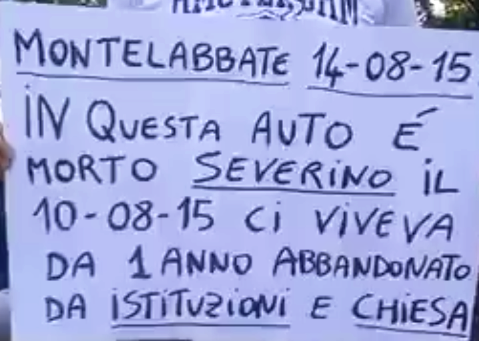 AMSTERDAM
MONTELABBATE 14-08-15
IN QUESTA AUTO É
MORTO SEVERINO IL
10-08-15 CI VIVEVA
DA 1 ANNO ABBANDONATO
DA ISTITUZIONI E CHIESA